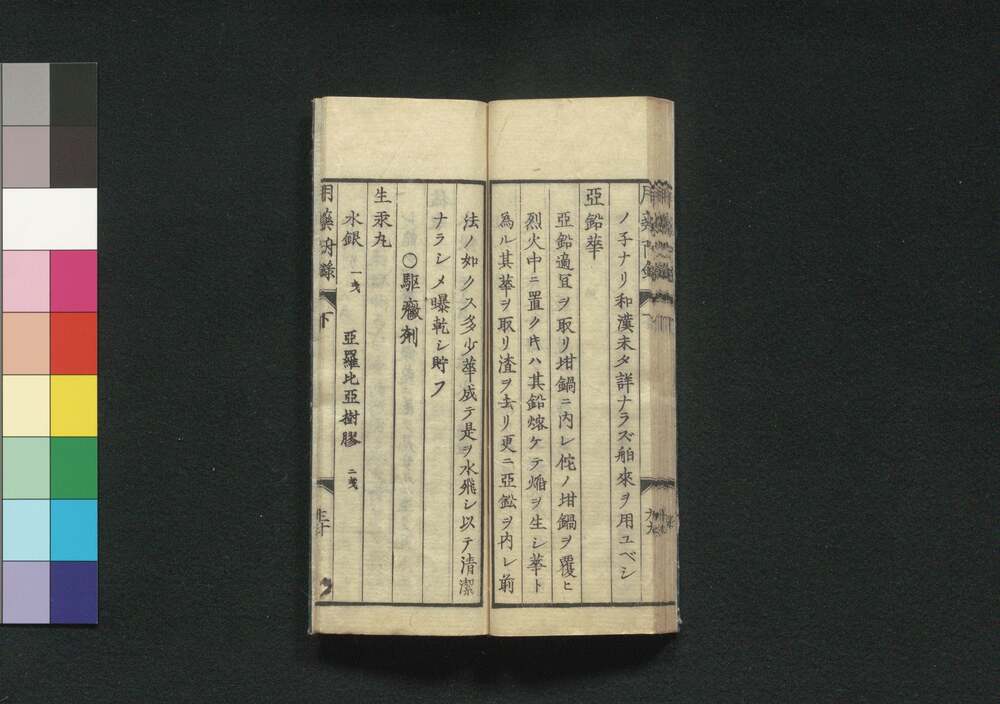 ノ子ナリ和漢未タ詳ナラズ舶來ヲ用ユベシ
亞鉛華
亞鉛適宜ヲ取リ坩鍋ニ内レ佗ノ坩鍋ヲ覆ヒ
烈火中ニ置ク𪜈ハ其鉛熔ケテ焔ヲ生シ華ト
為ル其華ヲ取リ渣ヲ去リ更ニ亞鈆ヲ内レ前
法ノ如クス多少華成テ是ヲ水飛シ以テ清潔
ナラシメ曝乾シ貯フ
○駆黴剤
生汞丸
水銀 一戔 亞羅比亞樹膠 二戔
下